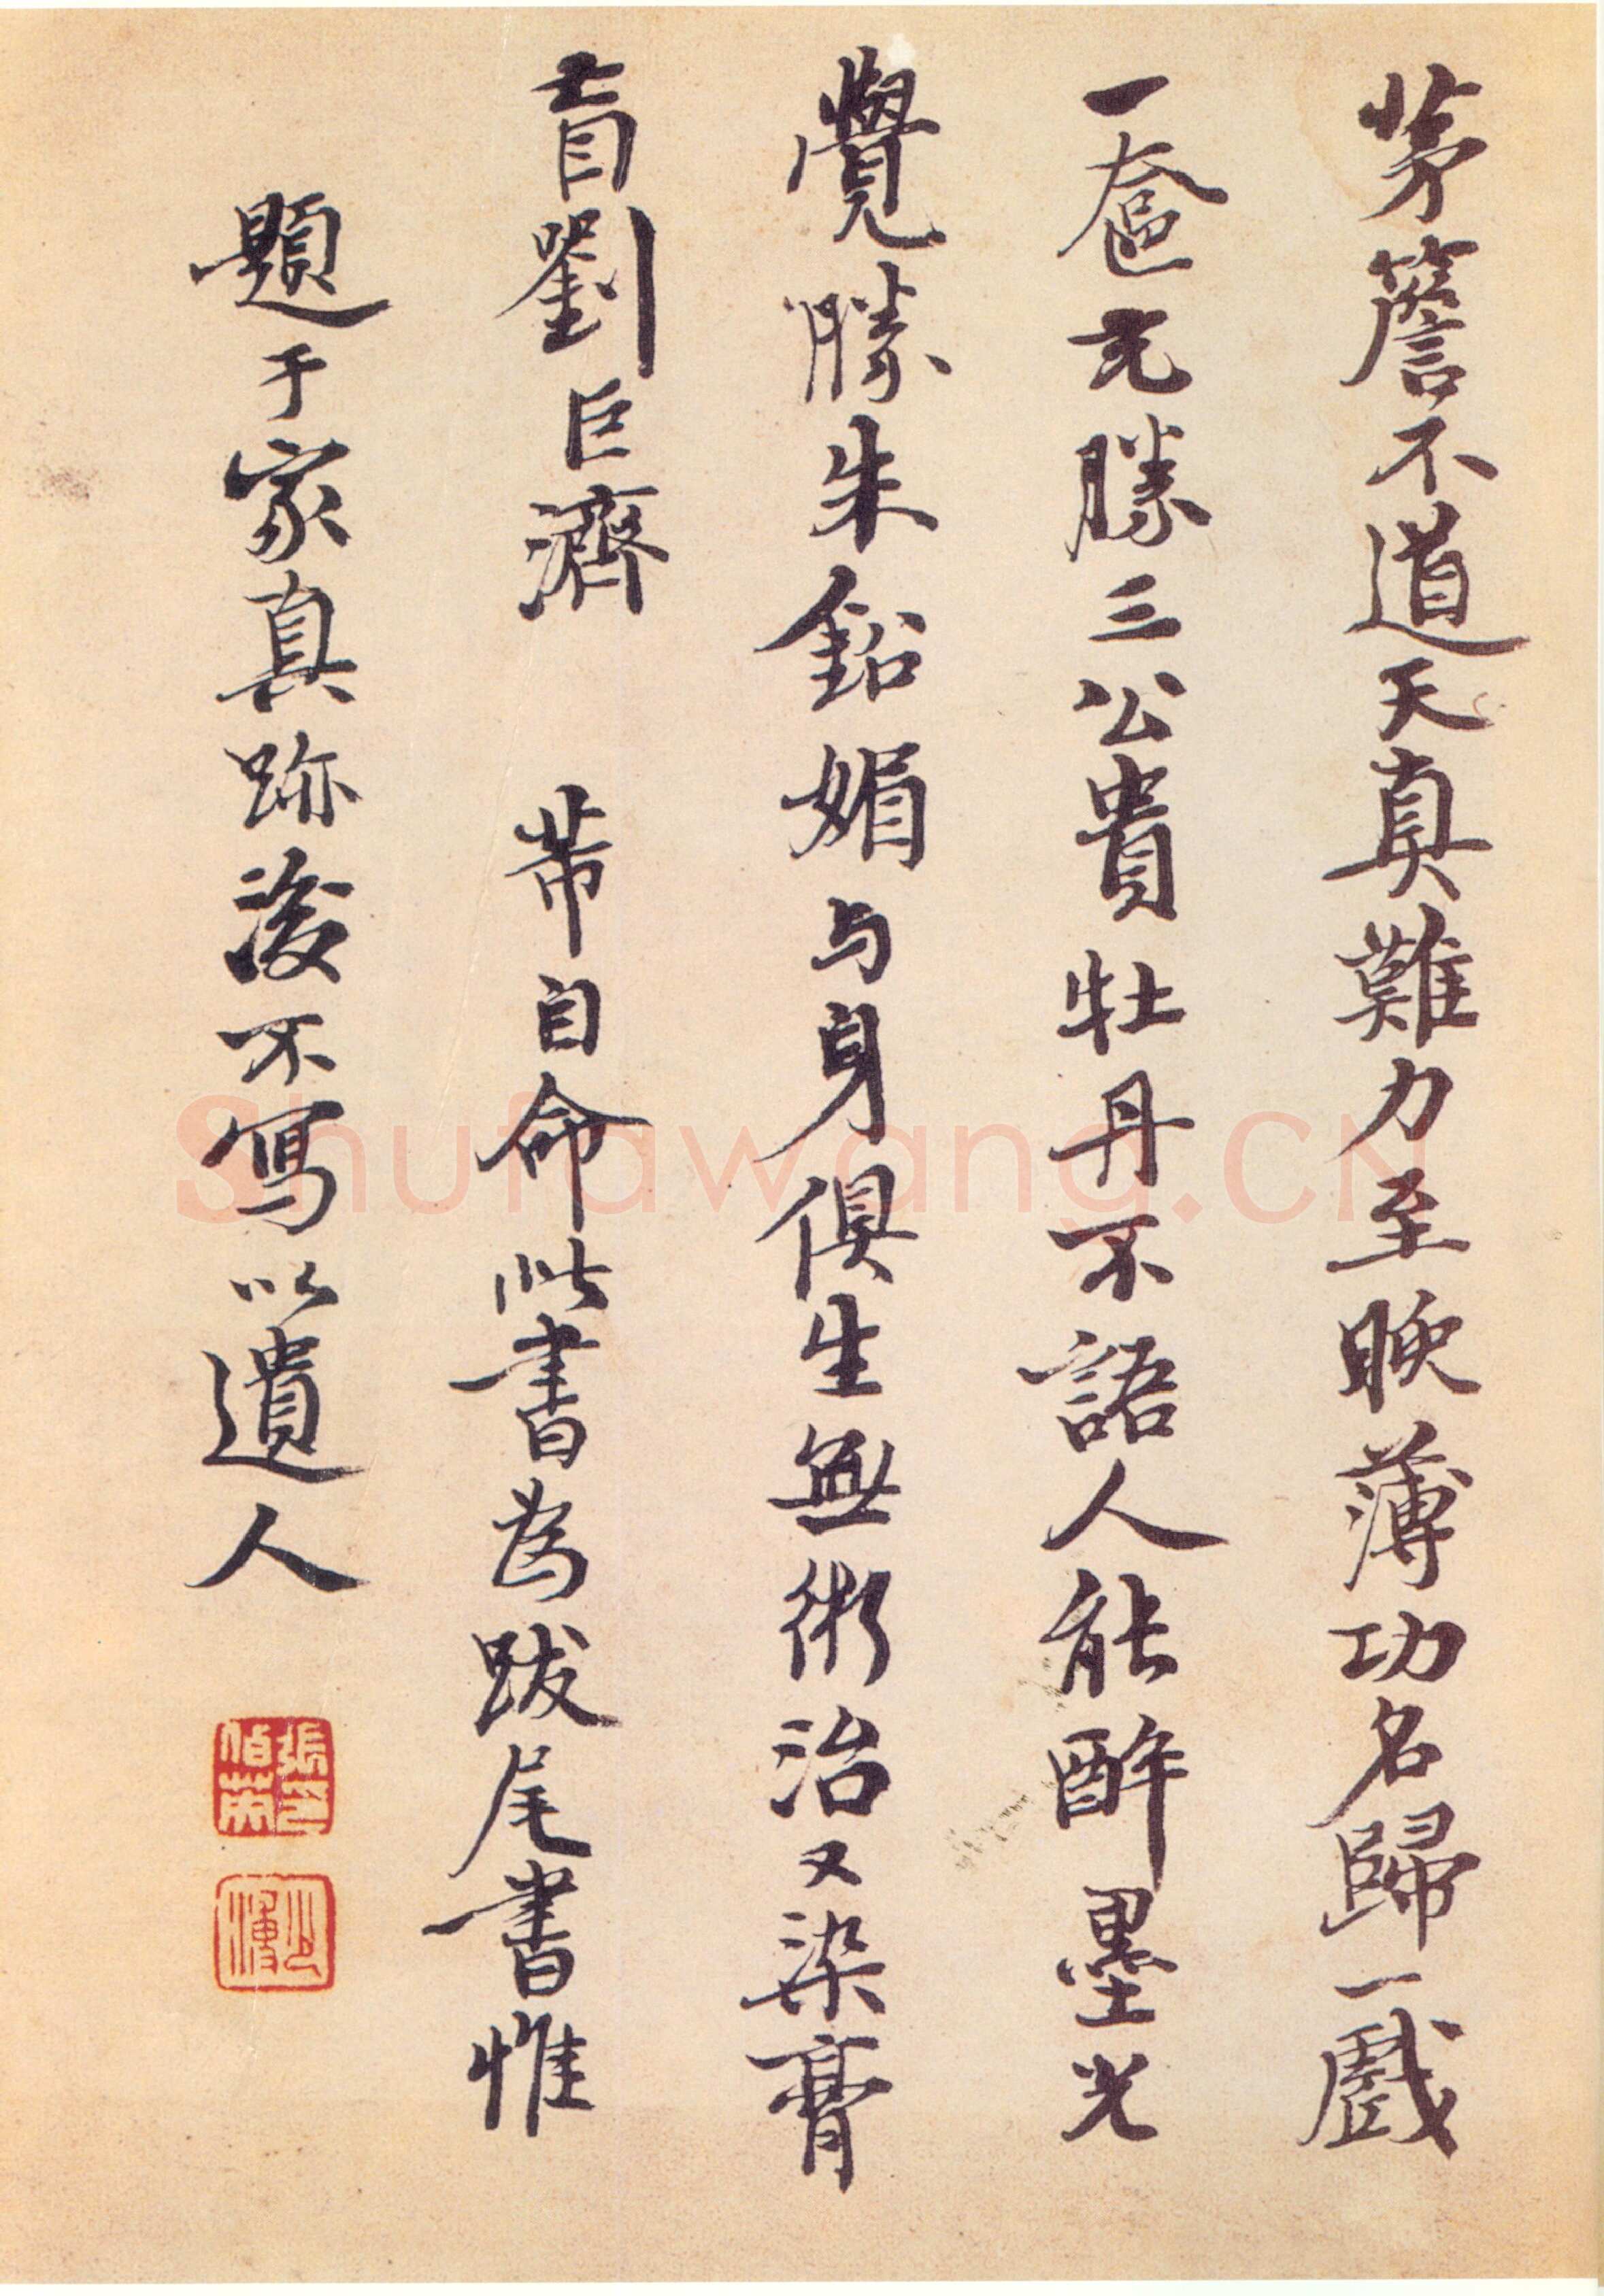 茅簷不道天真難力至晚薄功名歸一戲
一奩充勝三公貴牡丹不語人能醉墨光
覺勝朱鉛媚与身俱生無術治又染膏
肓劉巨濟 芾自命此書為跋尾書惟
題于家真跡後不寫以遺人
Shufawang.CN